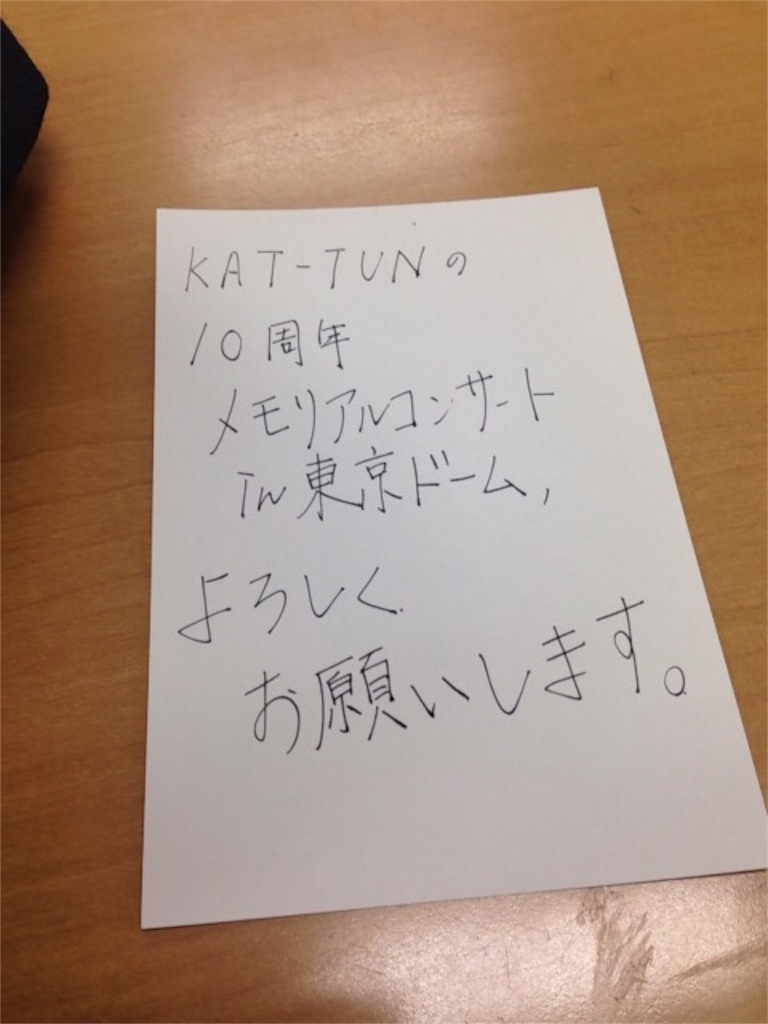 KAT-TUNの
10周年
メモリアルコンサート
in東京ドーム,
よろしく
お願いします。